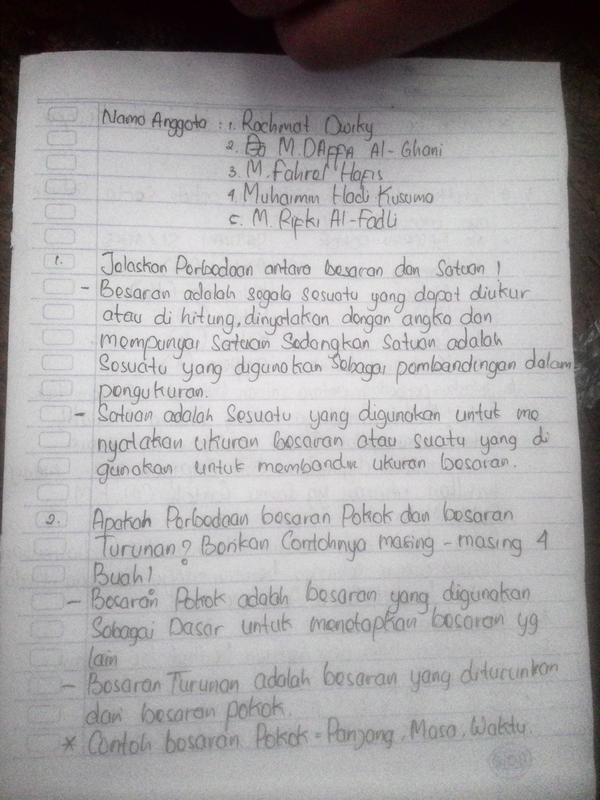 Nama Anggota : 1. Rachmat Dwiky
2. M. DAFFA Al-Ghani
3. M. Fahral Hafis
4. Muhaimin Hadi Kusuma
5. M. Rifki Al-Fadli
1. Jelaskan Perbedaan antara besaran dan Satuan !
- Besaran adalah segala sesuatu yang dapat diukur
atau di hitung, dinyatakan dengan angka dan
mempunyai satuan Sedangkan Satuan adalah
Sesuatu yang digunakan sebagai pembandingan dalam
pengukuran.
- Satuan adalah Sesuatu yang digunakan untuk me
nyatakan ukuran besaran atau suatu yang di
gunakan untuk membandin ukuran besaran.
2. Apakah Perbedaan besaran Pokok dan besaran
Turunan? Berikan Contohnya masing - masing 4
Buah!
- Besaran Pokok adalah besaran yang digunakan
Sebagai Dasar untuk menetapkan besaran yg
lain
- Besaran Turunan adalah besaran yang diturunkan
dari besaran pokok.
* Contoh besaran Pokok = Panjang, Masa, Waktu.